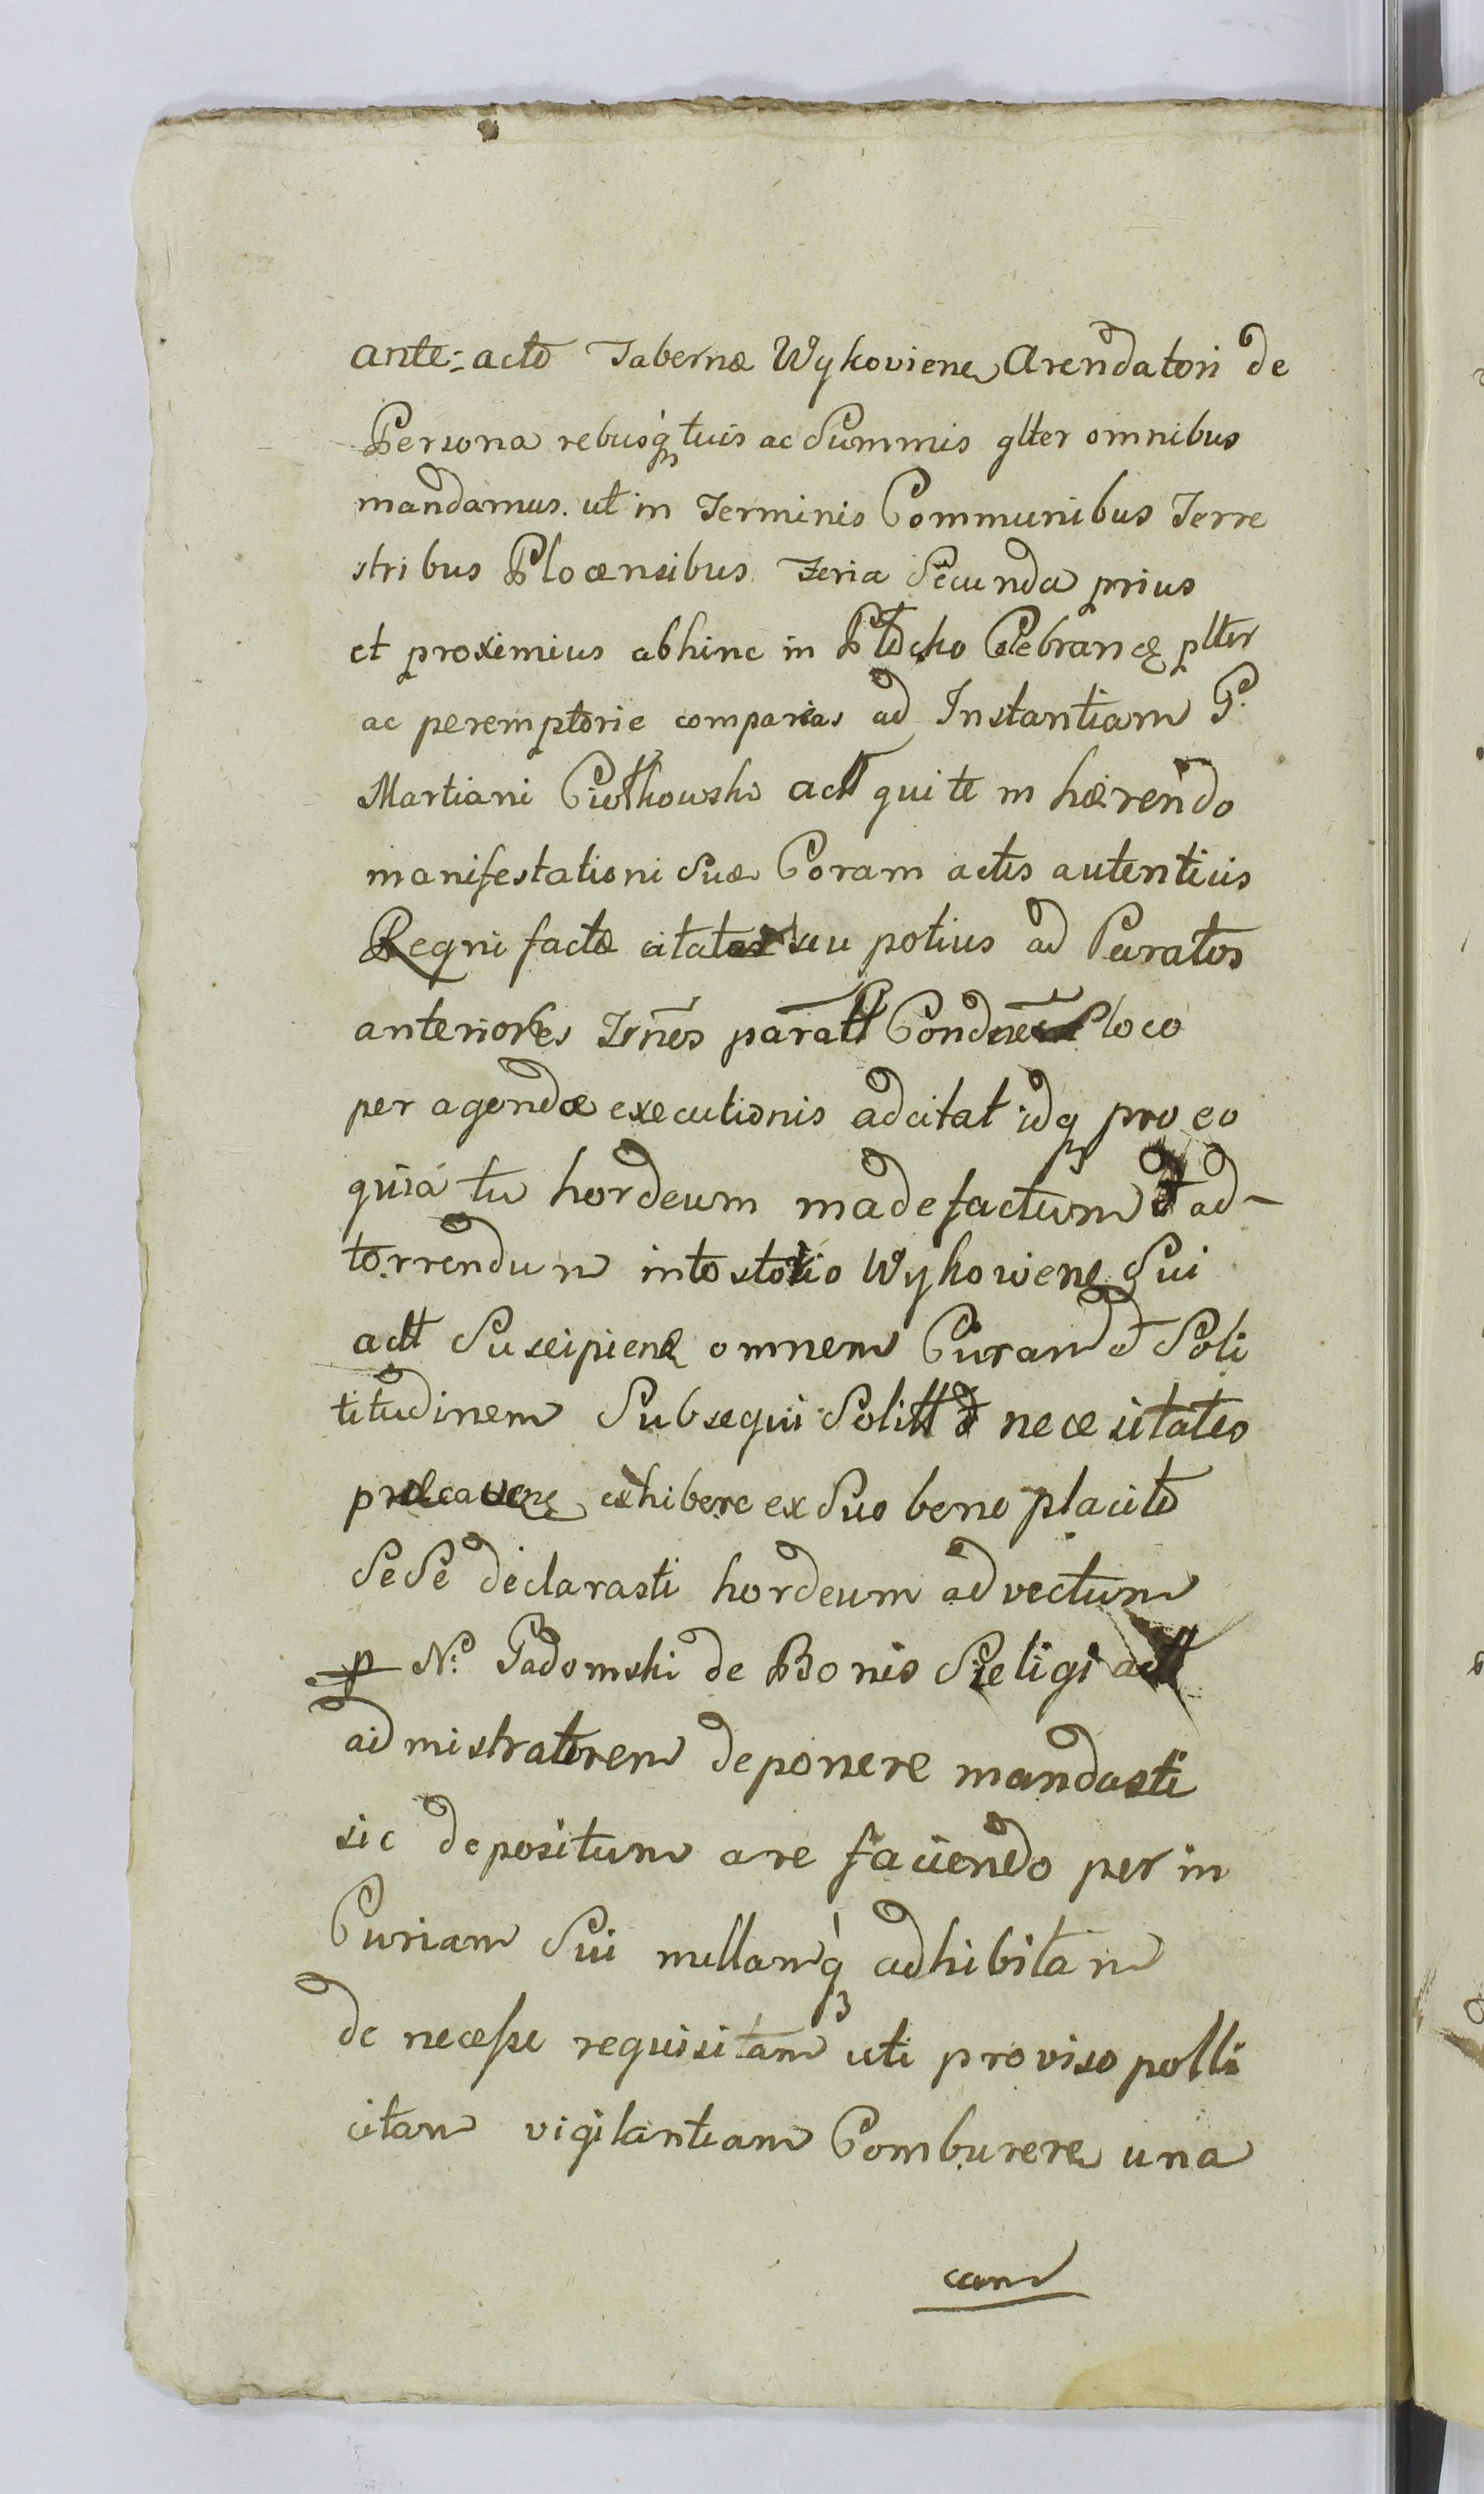 ante=acto Tabernæ Wykoviene Arendatori de
Persona rebusq tuis ac Summis glter omnibus
mandamus. ut in Terminis Communibus Terre
stribus Plocensibus Feria Secunda prius
et proximius abhinc in Plocko Celebrane pltter
ac peremptorie compareas ad Instantiam G.
Martiani Ciołkowski actt qui te in hærendo
manifestationi Suæ Coram actis autenticis
Regni factæ citat seu potius ad Paratos
anteriores Trnes paratt loco
per agendæ executionis adcitat idq pro eo
quia tu hordeum madefactum et ad-
torrendum in Wykowiene Sui
actt Suscipiene omnem Curam et Soli
titudinem Subsequi Solitt et necesitates
exhibere ex Suo bene placito
SeSe declarasti hordeum advectum
p N. Gadomski de Bonis Sieligi actt
admistratorem deponere mandasti
sic depositum are faciendo per in
Curiam Sui nullamq adhibitam
de necesse requisitam uti proviso polli
citam vigilantiam Comburere una
cum